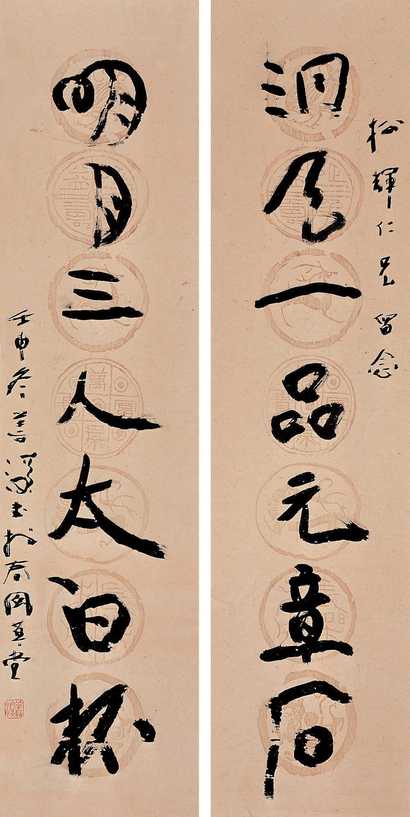 松輝仁兄留念
洞天一品元章石
明月三人太白杯
壬申冬書於堂